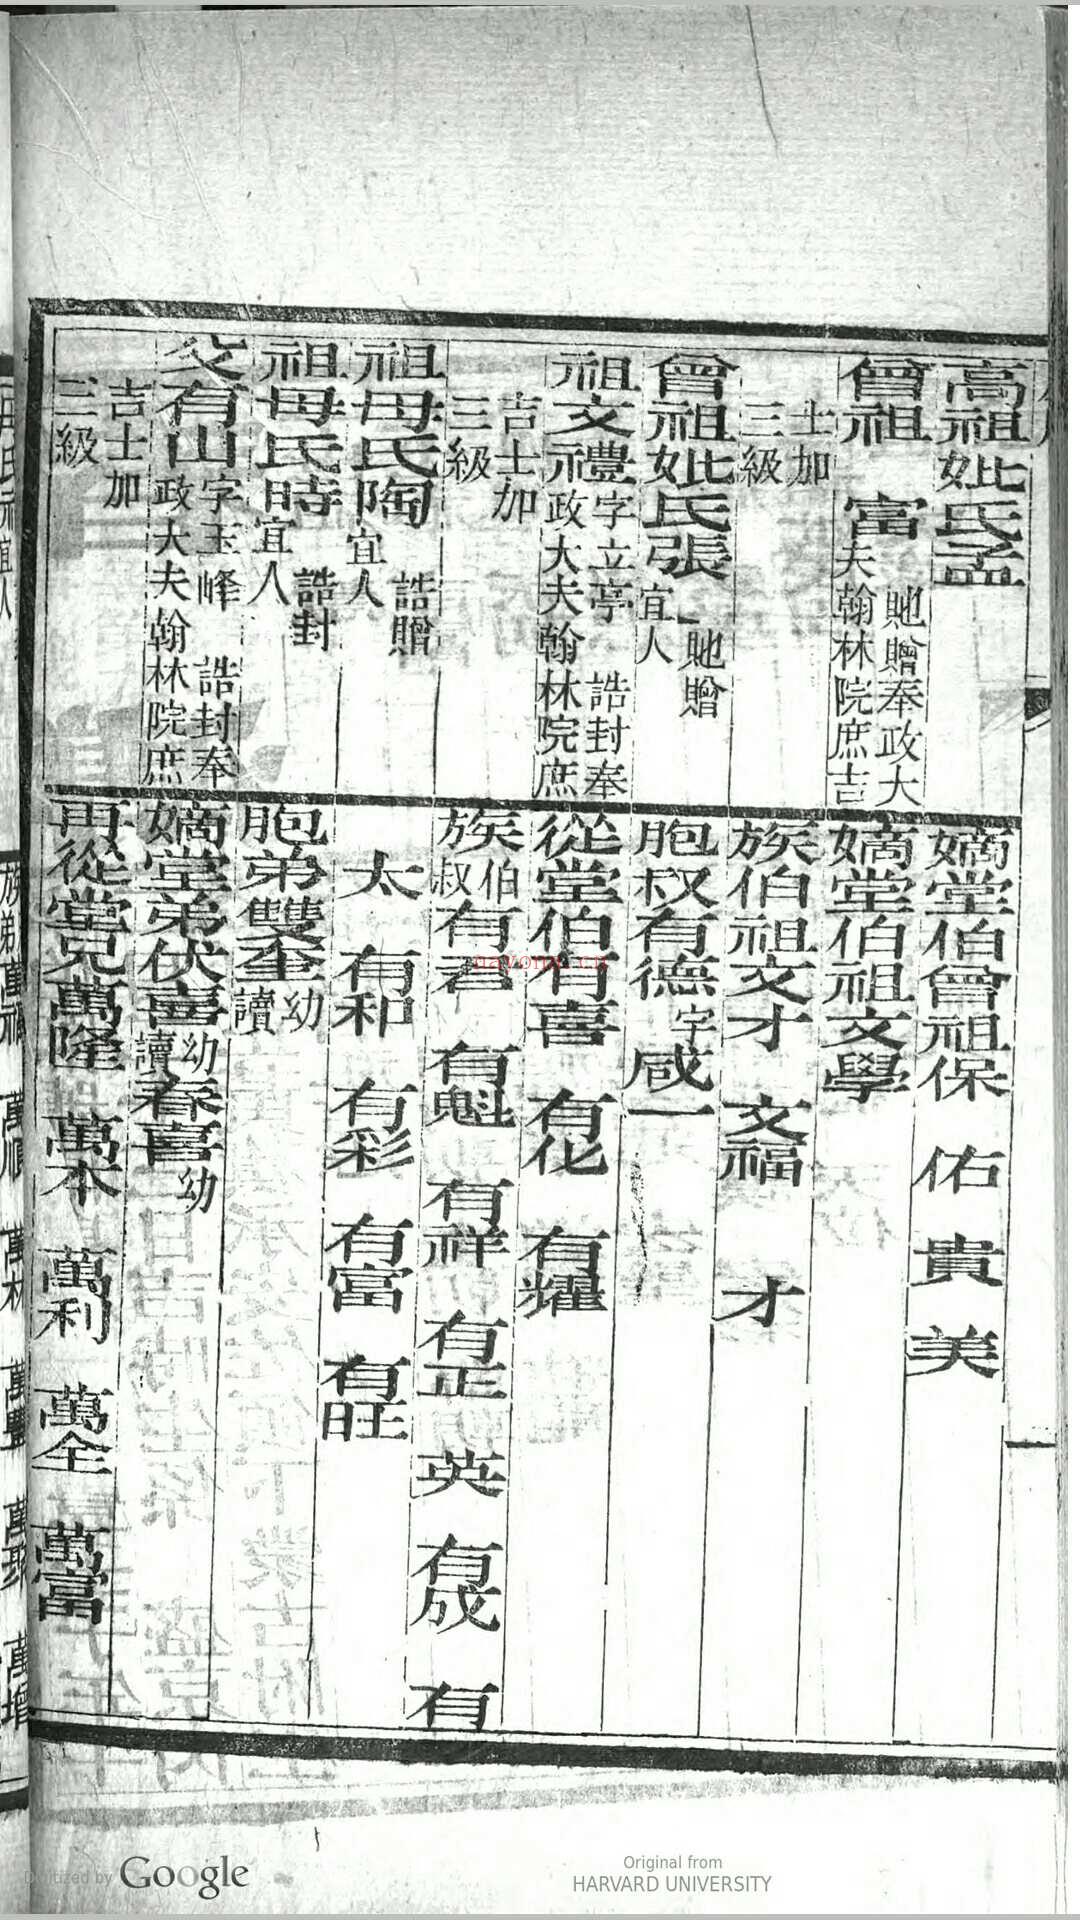 高祖妣氏孟
曾祖　富 貤贈奉政大
夫翰林院庶吉
士加
三級
曾祖妣氏張 貤贈
宜人
祖文禮 字立亭　誥封奉
政大夫翰林院庶
吉士加
三級
祖母氏陶 誥贈
宜人
祖母氏時 誥封
宜人
父有山 字玉峰　誥封奉
政大夫翰林院庶
吉士加
三級
嫡堂伯曾祖保　佑　貴　美
嫡堂伯祖文學
族伯祖文才　文福　才
胞叔有德字咸一
從堂伯有喜　有化　有耀
族伯叔有君　有魁　有祥　有正　英　有成　有
太　有和　有彩　有富　有旺
胞弟雙奎幼讀
嫡堂弟伏喜幼讀春喜幼
再從堂兄萬隆　萬本　萬利　萬全　萬富
nayona.cn
Digitized by Google
Original from
HARVARD UNIVERSITY